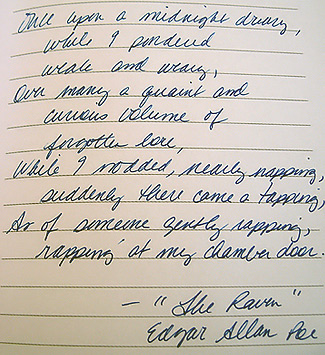 Once upon a midnight dreary,
while I pondered
weak and weary,
Over many a quaint and
curious volume of
forgotten lore,
While I nodded, nearly napping,
suddenly there came a tapping,
As of someone gently rapping,
rapping at my chamber door.
— "The Raven"
Edgar Allan Poe